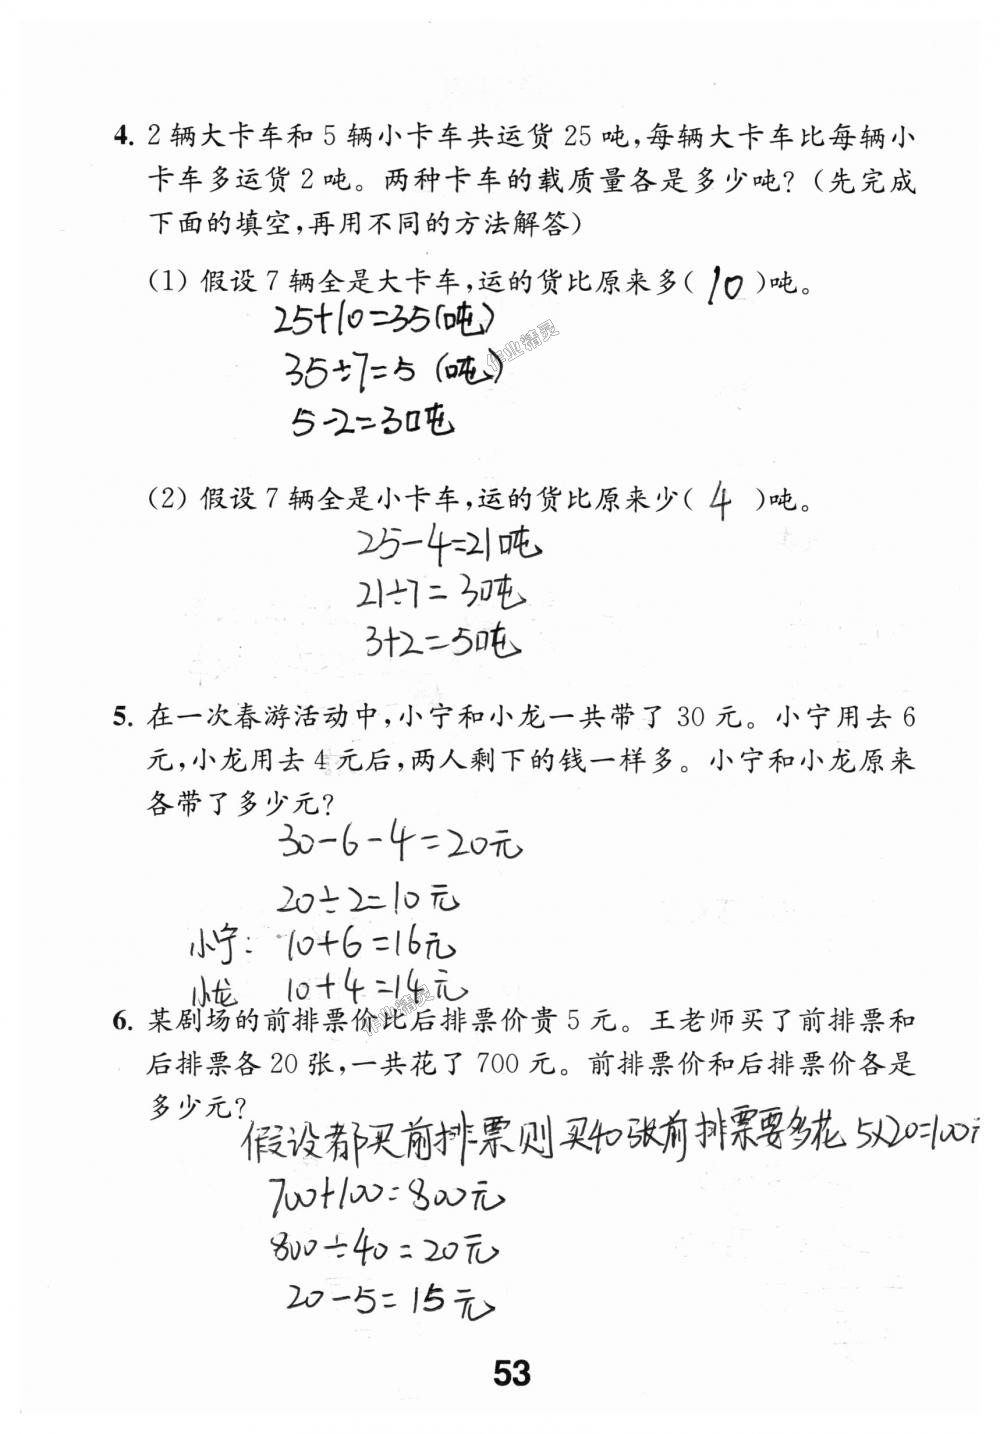 4. 2辆大卡车和5辆小卡车共运货25吨,每辆大卡车比每辆小
卡车多运货2吨。两种卡车的载质量各是多少吨?(先完成
下面的填空,再用不同的方法解答)
(1) 假设7辆全是大卡车,运的货比原来多( 10 )吨。
25+10=35(吨)
作业精灵
35÷7=5 (吨)
5-2=3吨
(2) 假设7辆全是小卡车,运的货比原来少( 4 )吨。
25-4=21吨
21÷7=3吨
3+2=5吨
5. 在一次春游活动中,小宁和小龙一共带了30元。小宁用去6
元,小龙用去4元后,两人剩下的钱一样多。小宁和小龙原来
各带了多少元?
30-6-4=20元
20÷2=10元
小宁: 10+6=16元
小龙 10+4=14元
作业精灵
6. 某剧场的前排票价比后排票价贵5元。王老师买了前排票和
后排票各20张,一共花了700元。前排票价和后排票价各是
多少元?
假设都买前排票则买40张前排票要多花5×20=100
700+100=800元
800÷40=20元
20-5=15元
53